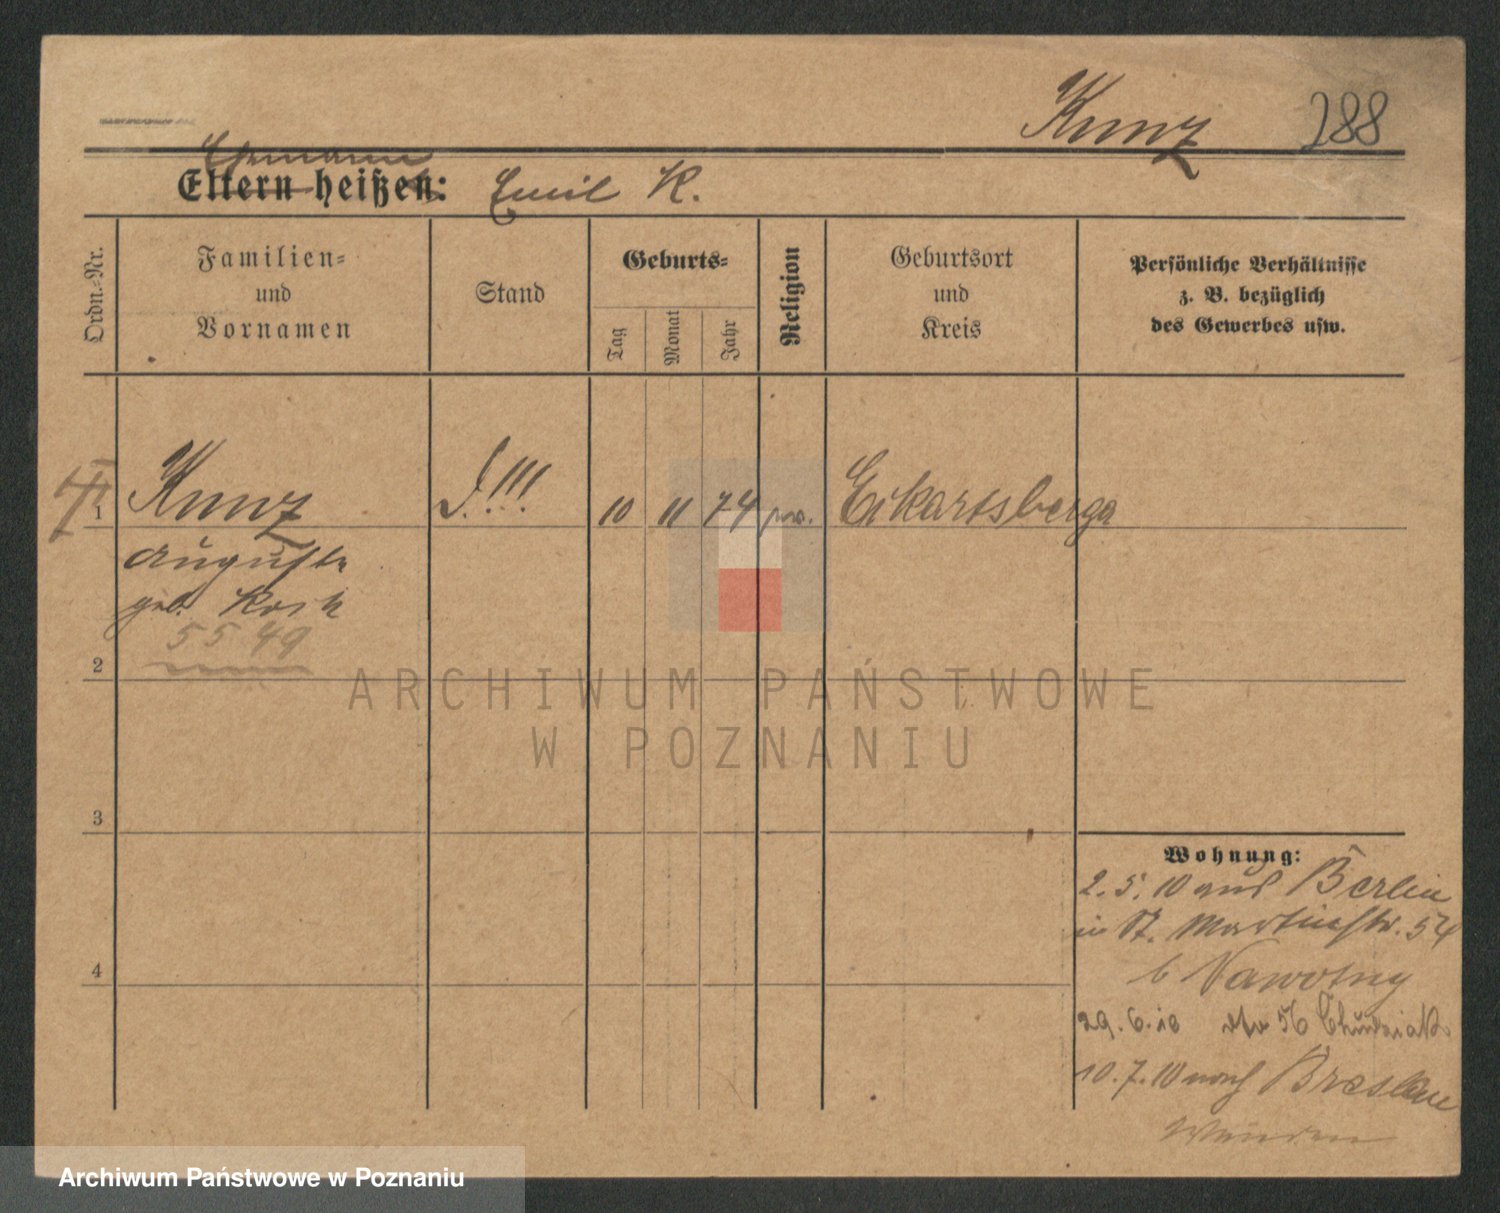 Kunz 288
Ehemann
Eltern heißen: Emil K.
Ordn.-Nr.
Familien-
und
Vornamen
Stand
Geburts-
Tag
Monat
Jahr
Religion
Geburtsort
und
Kreis
Persönliche Verhältnisse
z. B. bezüglich
des Gewerbes usw.
1 Kunz 10 11 74 Eckartsberga
Auguste
geb.
5549
2
3
4
Wohnung:
2. 5. 10 aus Berlin
in St. Martinstr. 54
b Nawotny
29. 6. 10 56
10. 7. 10 nach Breslau
ARCHIWUM PAŃSTWOWE
W POZNANIU
Archiwum Państwowe w Poznaniu